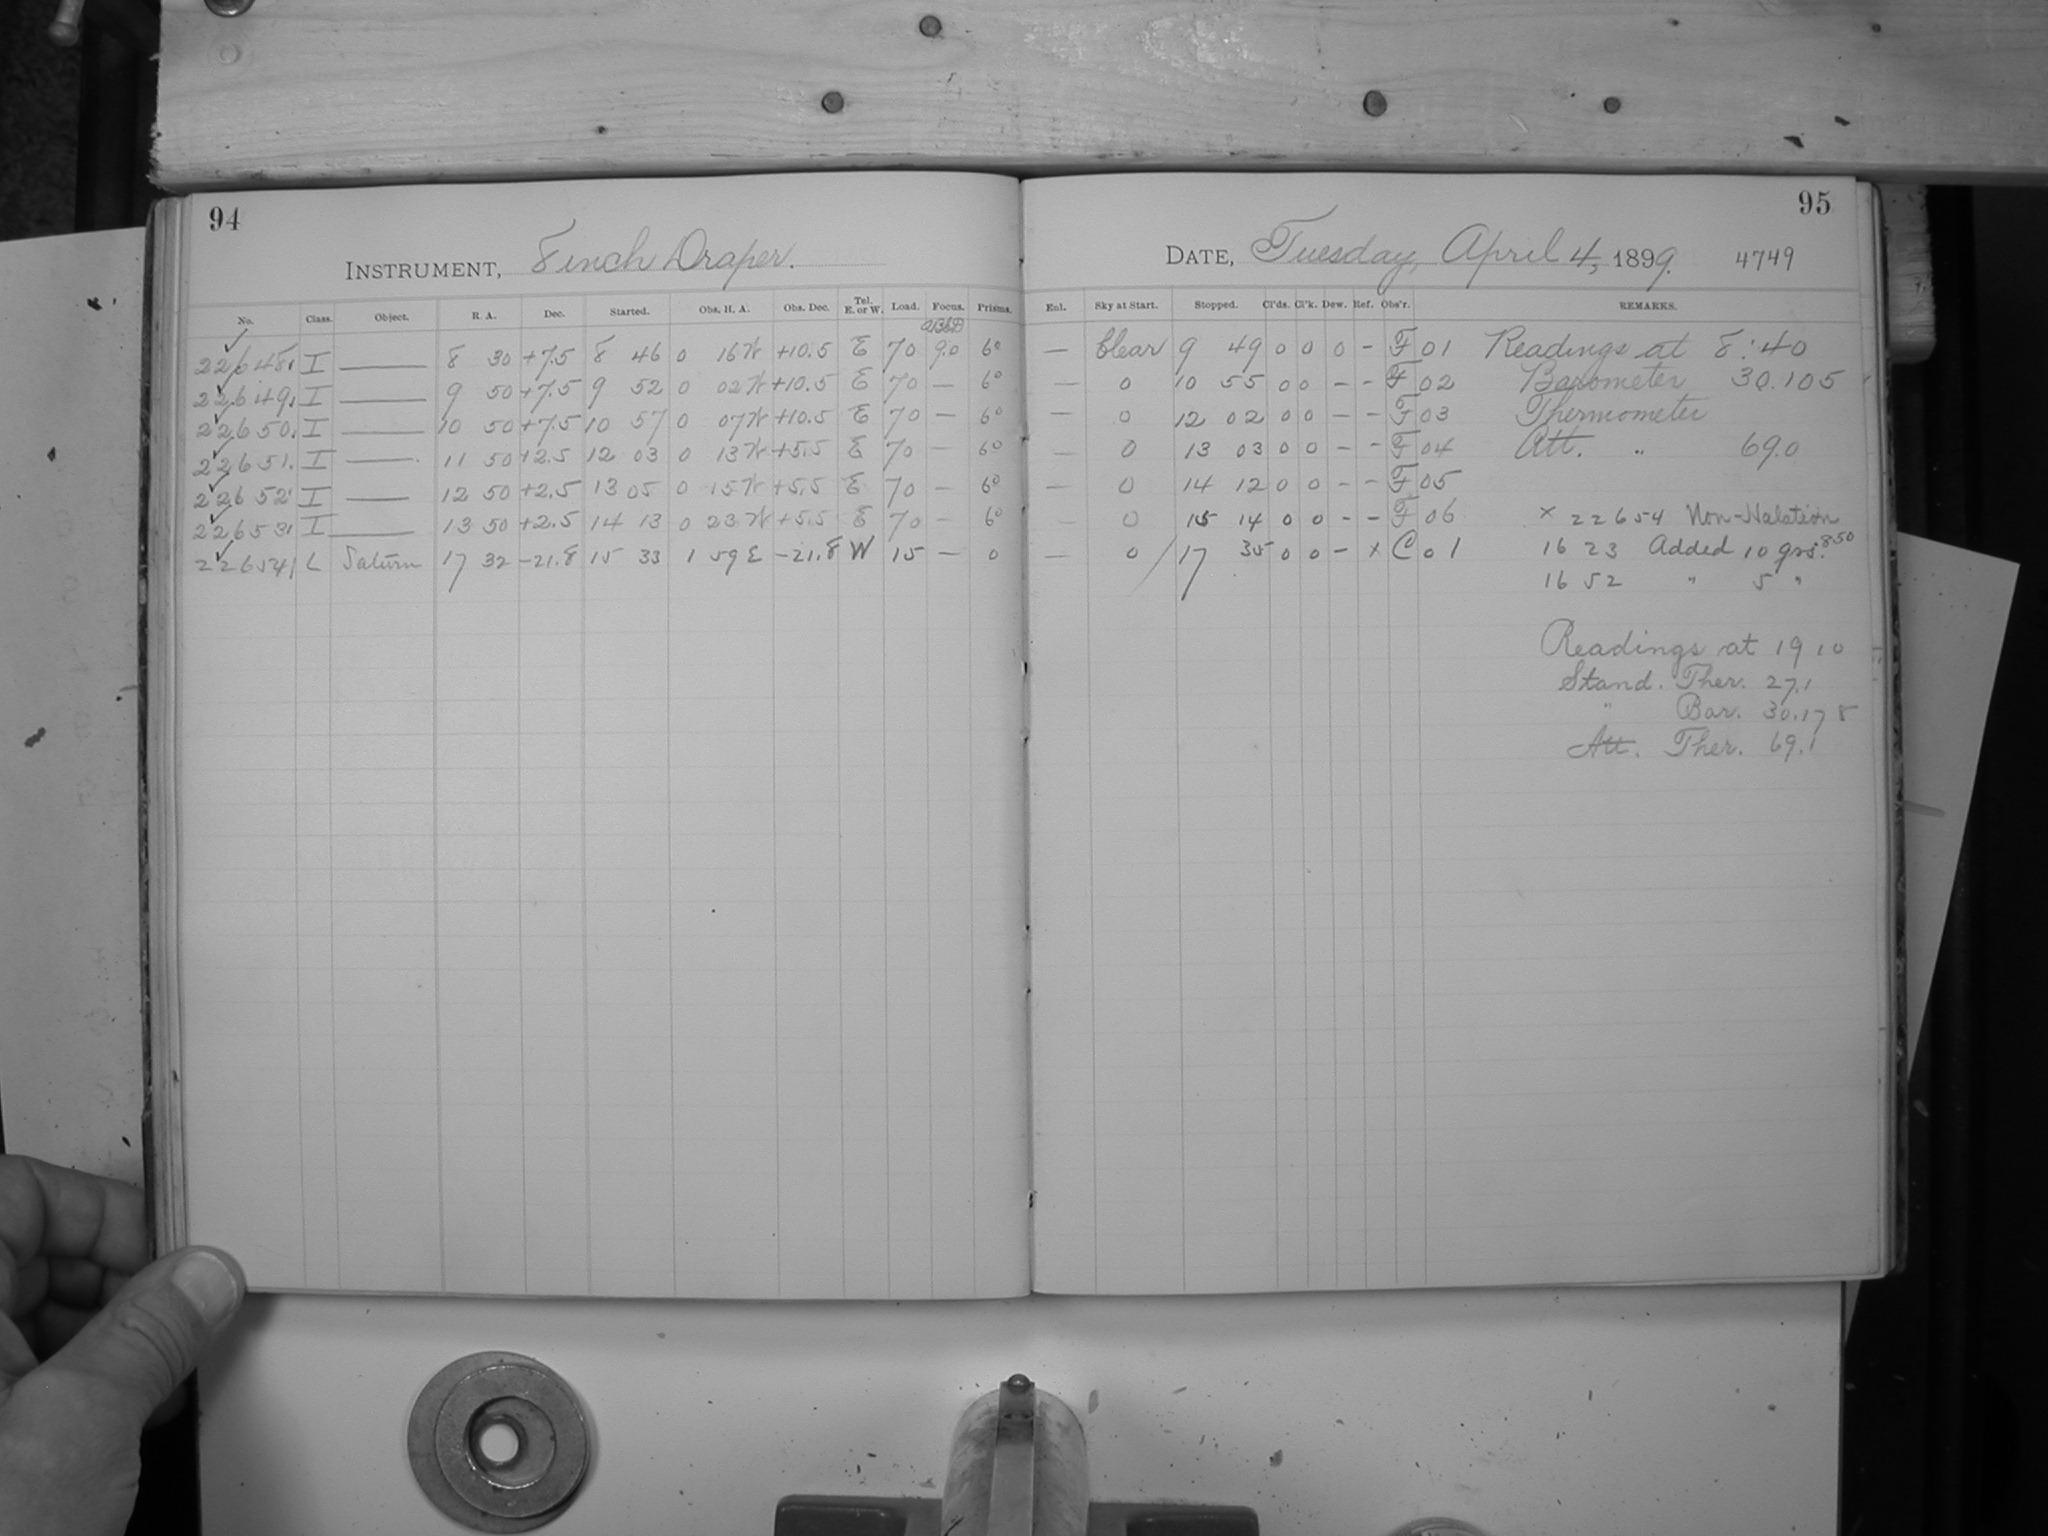 94
INSTRUMENT, 8 inch Draper.
No. Class. Object. R. A. Dec. Started. Obs. H. A. Obs. Dec. Tel. E. or W. Load. Focus. Prisms.
22648 I — 8 30 +7.5 8 46 0 16 W +10.5 E 70 9.0 6°
22649 I — 9 50 +7.5 9 52 0 02 W +10.5 E 70 — 6°
22650 I — 10 50 +7.5 10 57 0 07 W +10.5 E 70 — 6°
22651 I — 11 50 +2.5 12 03 0 13 W +5.5 E 70 — 6°
22652 I — 12 50 +2.5 13 05 0 15 W +5.5 E 70 — 6°
22653 I — 13 50 +2.5 14 13 0 23 W +5.5 E 70 — 6°
22654 L Saturn 17 32 -21.8 15 33 1 59 E -21.8 W 15 — 0
95
DATE, Tuesday, April 4, 1899. 4749
Enl. Sky at Start. Stopped. Cl'ds. Cl'k. Dew. Ref. Obs'r. REMARKS.
— Clear 9 49 0 0 0 - F 01 Readings at 8:40
— 0 10 55 0 0 - - F 02 Barometer 30.105
— 0 12 02 0 0 - - F 03 Thermometer
— 0 13 03 0 0 - - F 04 Att. " 69.0
— 0 14 12 0 0 - - F 05
— 0 15 14 0 0 - - F 06 x 22654 Non-Halation
— 0 17 35 0 0 - x C 01 16 23 Added 10 grs. 850
16 52 " 5 "
Readings at 19 10
Stand. Ther. 27.1
" Bar. 30.178
Att. Ther. 69.1